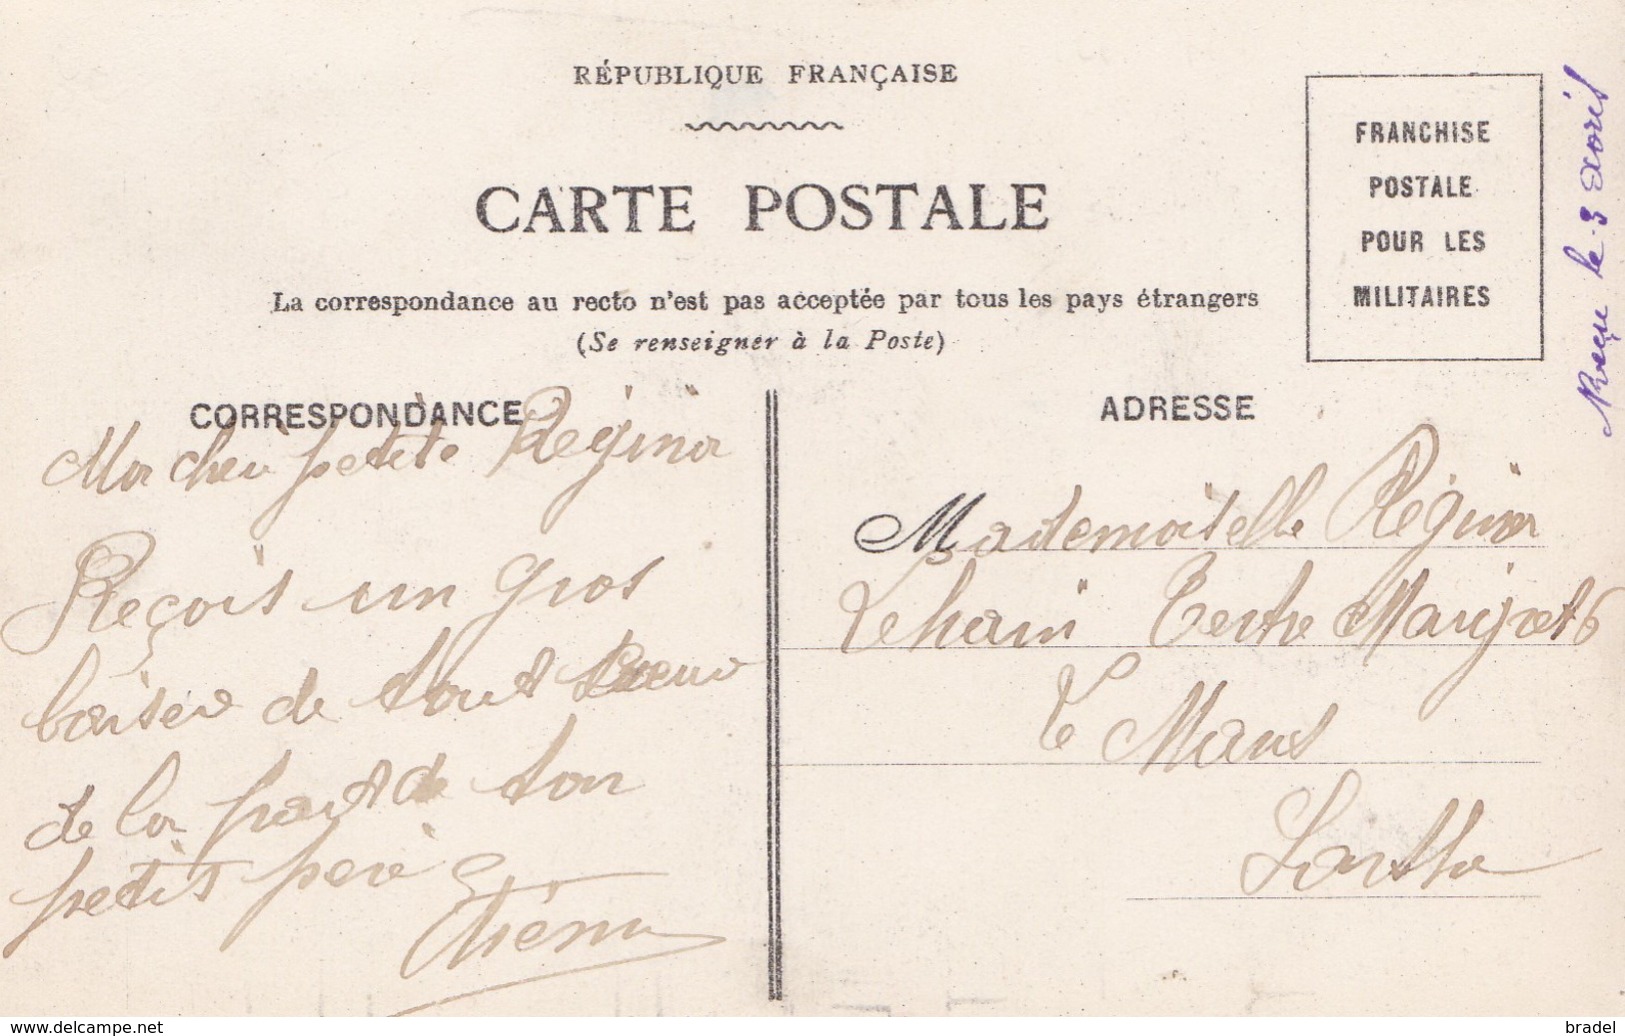 RÉPUBLIQUE FRANÇAISE
CARTE POSTALE
La correspondance au recto n'est pas acceptée par tous les pays étrangers
(Se renseigner à la Poste)
FRANCHISE
POSTALE
POUR LES
MILITAIRES
Reçu le 3
CORRESPONDANCE
Ma cher petite Regina
Reçois un gros
baiser de tout
de la part de ton
petit père
Etienne
ADRESSE
Mademoiselle Régina
Lehain Tertre
Le Mans
Sarthe
www.delcampe.net
bradel